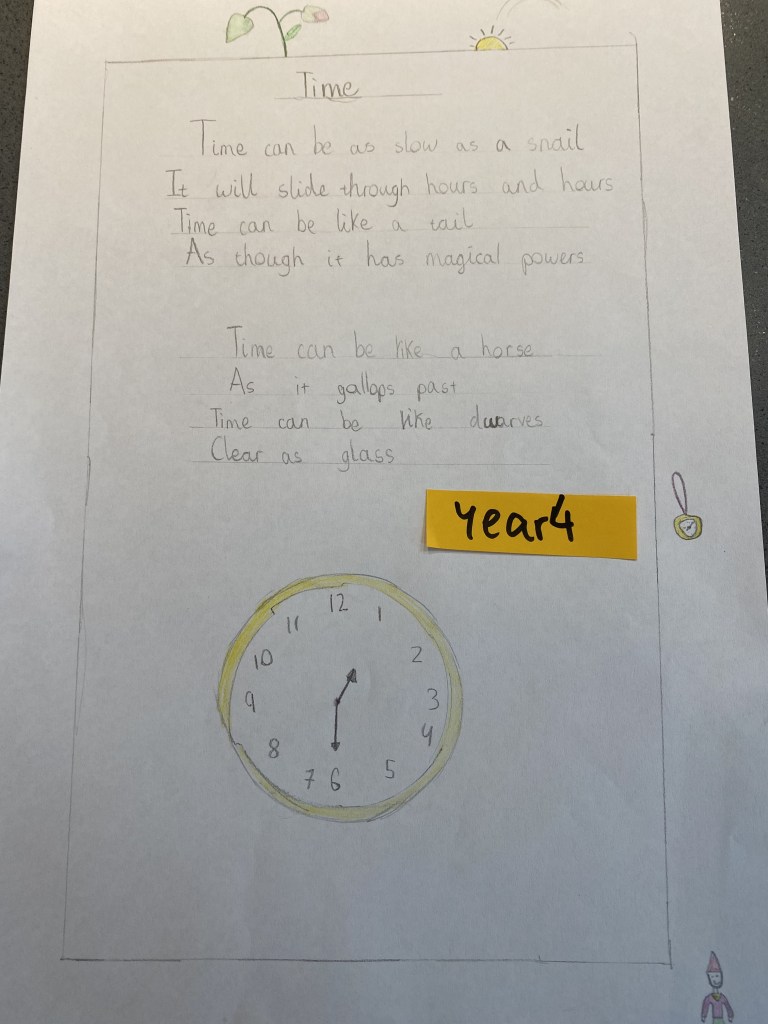 Time
Time can be as slow as a snail
It will slide through hours and hours
Time can be like a tail
As though it has magical powers
Time can be like a horse
As it gallops past
Time can be like dwarves
Clear as glass
Year4
12
11
1
10
2
9
3
8
4
7
6
5